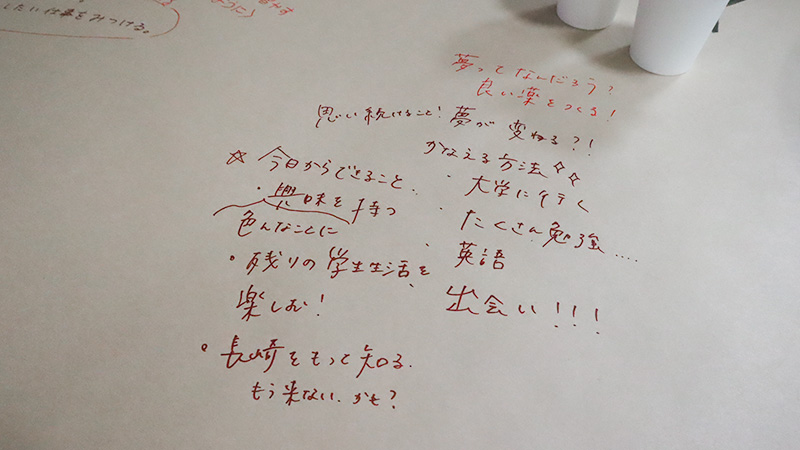 したい仕事をみつける。
夢ってなんだろう?
良い薬をつくる!
思い続けること!夢が変わる?!
かなえる方法☆☆
・大学に行く
・たくさん勉強....
・英語
出会い!!!
☆今日からできること.
・興味を持つ
色んなことに
・残りの学生生活を
楽しむ!
・長崎をもっと知る.
もう来ないかも?